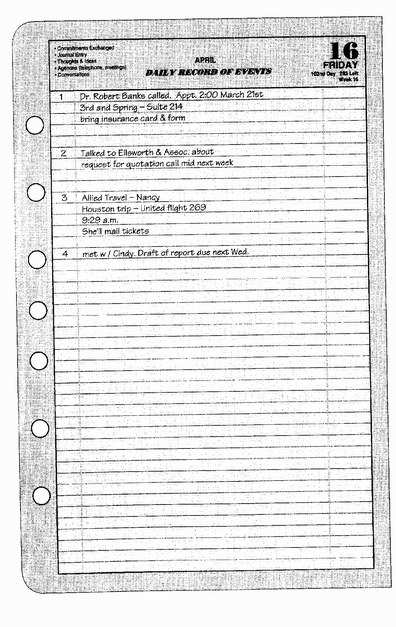 • Commitments Exchanged
• Journal Entry
• Thoughts & Ideas
• Agendas (telephone, meetings)
• Conversations
APRIL
DAILY RECORD OF EVENTS
16
FRIDAY
Week 16
1 Dr. Robert Banks called. Appt. 2:00 March 21st
3rd and Spring – Suite 214
bring insurance card & form
2 Talked to Ellsworth & Assoc. about
request for quotation call mid next week
3 Allied Travel – Nancy
Houston trip – United flight 269
9:29 a.m.
She'll mail tickets
4 met w / Cindy. Draft of report due next Wed.